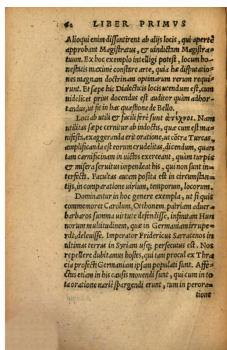 62 LIBER PRIMVS
Alioqui enim dissentirent ab alijs locis, qui apertè
approbant Magistratus, & uindictam Magistra-
tuum. Ex hoc exemplo intelligi potest, locum ho-
nestatis maximè constare arte, quia hæ disputatio-
nes magnam doctrinam optimarum rerum requi-
runt. Et sæpe hic Dialecticis locis utendum est,
nidelicet prius docendus est auditor quàm adhor-
tandus, ut fit in hac quæstione de Bello.
Loci ab utili & facili ferè sunt
utilitas sæpe cernitur ab indoctis, quæ cum est ma-
nifesta, exaggeranda erit oratione, ut còtra Turcas,
amplificanda est eorum crudelitas, dicendum, quan
tam carnificinam in uictos exerceant, quàm turpis
& misera seruitus impendeat his, qui non sunt in-
terfecti. Facultas autem posita est in circumstan-
tijs, in comparatione uirium, temporum, locorum.
Dominantur in hoc genere exempla, ut si quis
commemoret Carolum, Othonem, patriam aduersus
barbaros summa uirtute defendisse, infinitam Hun
norum multitudinem, quæ in Germaniam irrupe-
rat, deleuisse. Imperator Fridericus Sarracenos in
ultimas terras in Syriam usque persecutus est. Nos
repellere dubitamus hostes, qui tam procul ex Thra
cia profecti Germaniam ipsam populati sunt. Affe-
ctus etiam in his causis mouendi sunt, qui cum in to
ta oratione uariè spargendi erunt, tum in perora-
tione